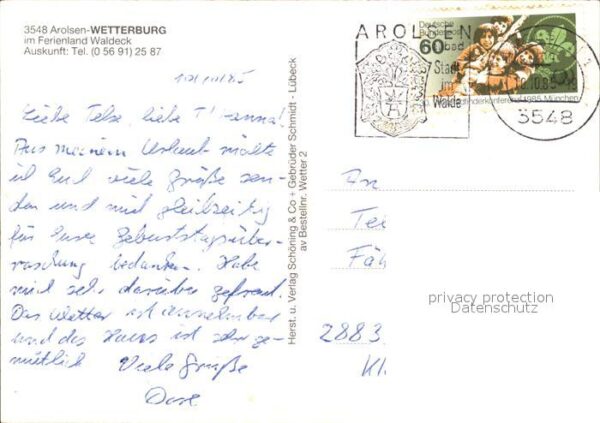 3548 Arolsen-WETTERBURG
im Ferienland Waldeck
Auskunft: Tel. (0 56 91) 25 87
Liebe Telse, liebe
Aus meinem Urlaub möchte
ich Euch viele Grüße sen-
den und mich gleichzeitig
für Eure Geburtstagsüber-
raschung bedanken. Habe
mich sehr darüber gefreut.
Das Wetter ist annehmbar
und das Haus ist sehr ge-
mütlich Viele Grüße
Dore
Herst. u. Verlag Schöning & Co + Gebrüder Schmidt · Lübeck
av Bestellnr. Wetter 2
AROLSEN
Deutsche
Bundespost
60
bad
Stadt
im
Walde
1985 München
3548
An
Fäh
privacy protection
Datenschutz
2883
Kl.